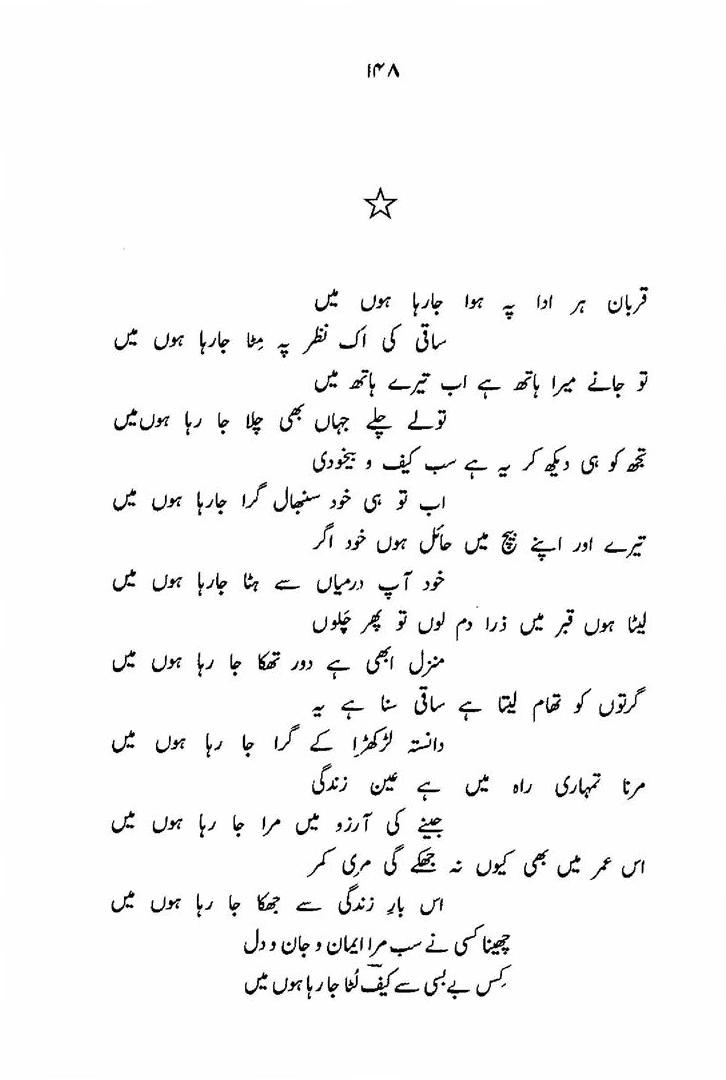 ۱۴۸
قربان ہر ادا پہ ہوا جارہا ہوں میں
ساقی کی اک نظر پہ مِٹا جارہا ہوں میں
تو جانے میرا ہاتھ ہے اب تیرے ہاتھ میں
تولے چلے جہاں بھی چلا جا رہا ہوں میں
تجھ کو ہی دیکھ کر یہ ہے سب کیف و بیخودی
اب تو ہی خود سنبھال گرا جارہا ہوں میں
تیرے اور اپنے بیچ میں حائل ہوں خود اگر
خود آپ درمیاں سے ہٹا جارہا ہوں میں
لیٹا ہوں قبر میں ذرا دم لوں تو پھر چَلوں
منزل ابھی ہے دور تھکا جا رہا ہوں میں
گرتوں کو تھام لیتا ہے ساقی سنا ہے یہ
دانستہ لڑکھڑا کے گرا جا رہا ہوں میں
مرنا تمہاری راہ میں ہے عین زندگی
جینے کی آرزو میں مرا جا رہا ہوں میں
اس عمر میں بھی کیوں نہ جھکے گی مری کمر
اس بارِ زندگی سے جھکا جا رہا ہوں میں
چھینا کسی نے سب مرا ایمان و جان و دل
کِس بے بسی سے کیفؔ لُٹا جا رہا ہوں میں